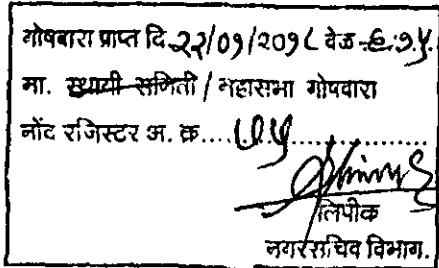 गोषवारा प्राप्त दि. २२/०१/२०१८ वेळ ६:१५
मा. स्थायी समिती / महासभा गोषवारा
नोंद रजिस्टर अ. क्र....
लिपीक
नगरसचिव विभाग.